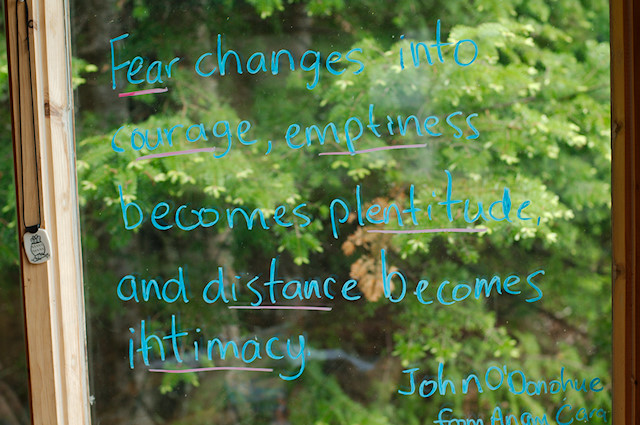 Fear changes into
courage, emptiness
becomes plentitude,
and distance becomes
intimacy
John O'Donohue
from Anam Cara